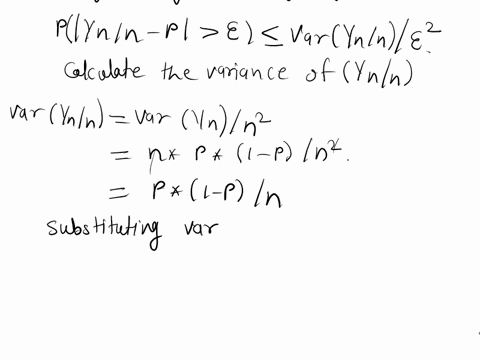 P(|Yn/n - P| > ε) ≤ Var(Yn/n)/ε².
Calculate the variance of (Yn/n)
var (Yn/n) = var (Yn)/n²
= n* P* (1-P) /n².
= P*(1-P)/n
substituting var